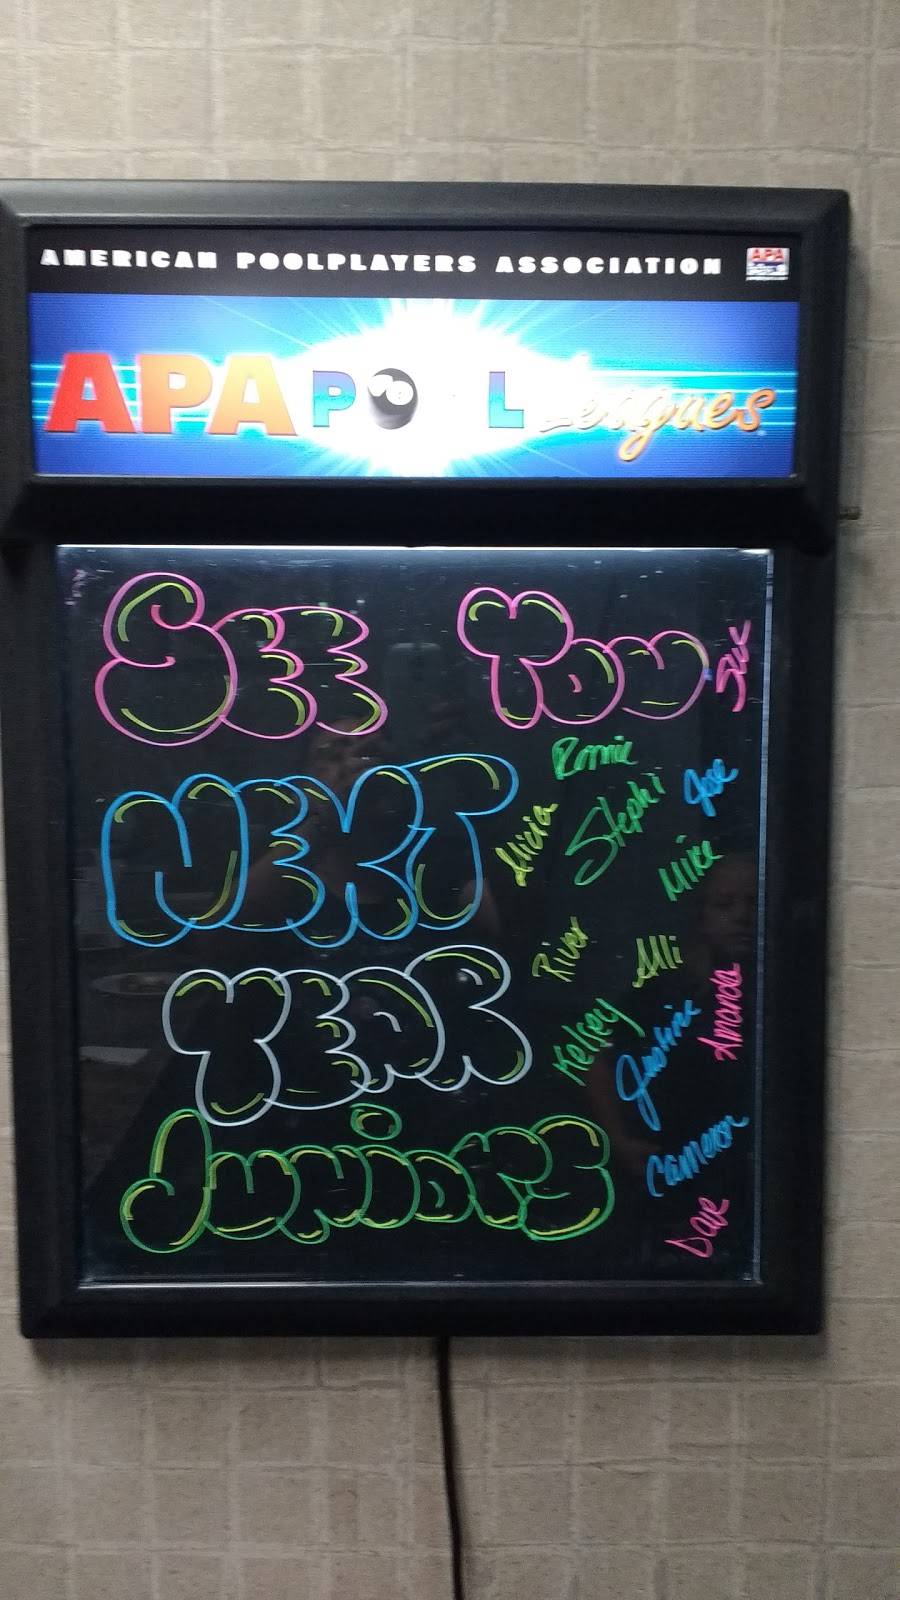 AMERICAN POOLPLAYERS ASSOCIATION
APA
APA POOL Leagues
SEE YOU
NEXT
YEAR
Juniors
Sue
Ronnie
Joe
Stephi
Alicia
Mike
River
Alli
Amanda
Kelsey
Justine
Cameron
Dave